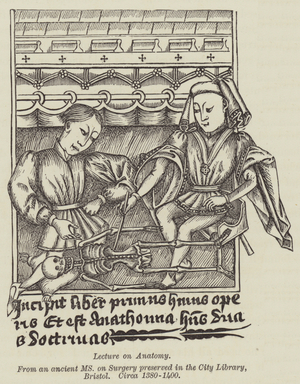 Incipit liber primus huius ope
ris Et est Anathomia h'ns dua
s doctrinas
Lecture on Anatomy.
From an ancient MS. on Surgery preserved in the City Library,
Bristol. Circa 1380-1400.